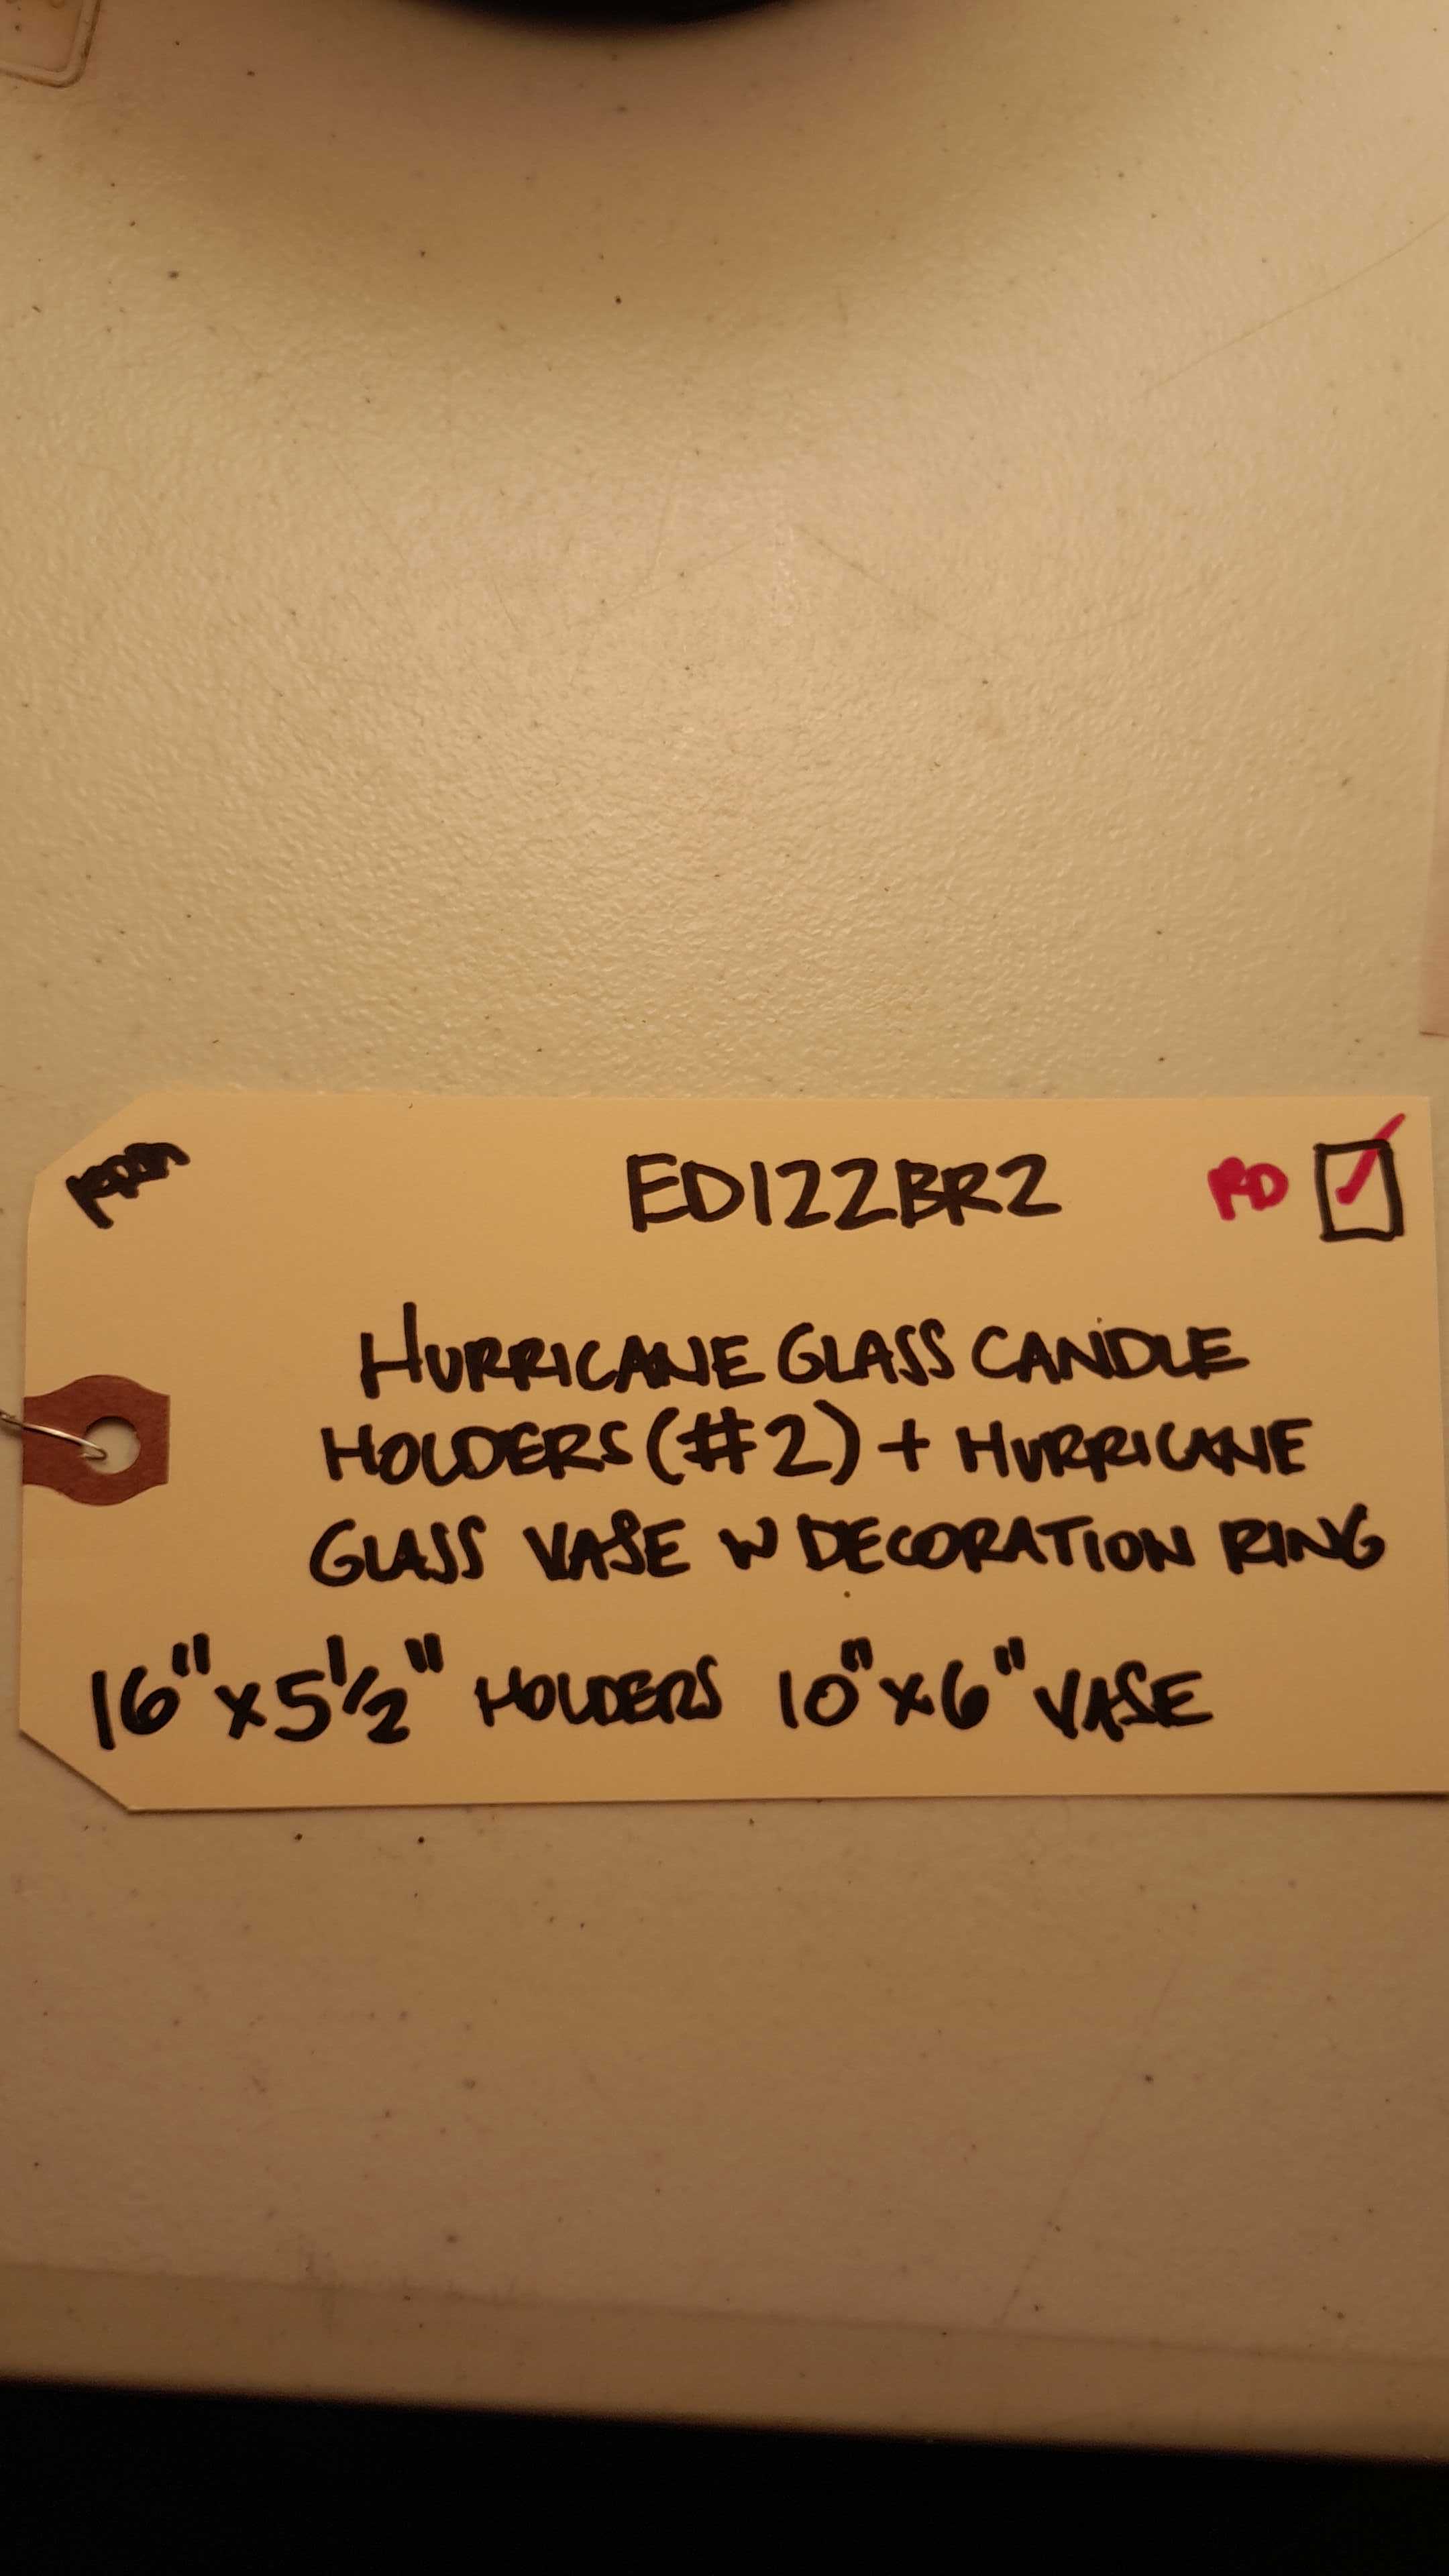 ED122BR2 RD
HURRICANE GLASS CANDLE
HOLDERS (#2) + HURRICANE
GLASS VASE W DECORATION RING
16" x 5 1/2" HOLDERS 10" x 6" VASE